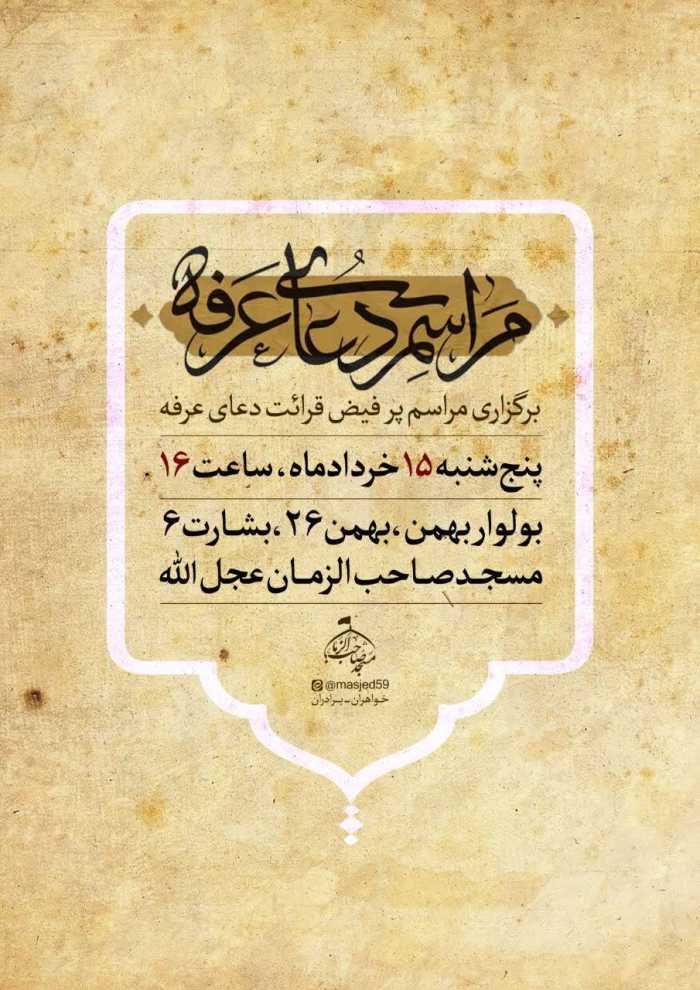 مراسم دعای عرفه
برگزاری مراسم پر فیض قرائت دعای عرفه
پنج‌شنبه ۱۵ خردادماه، ساعت ۱۶
بولوار بهمن، بهمن ۲۶، بشارت ۶
مسجد صاحب الزمان عجل الله
مسجد صاحب الزمان
@masjed59
خواهران-برادران